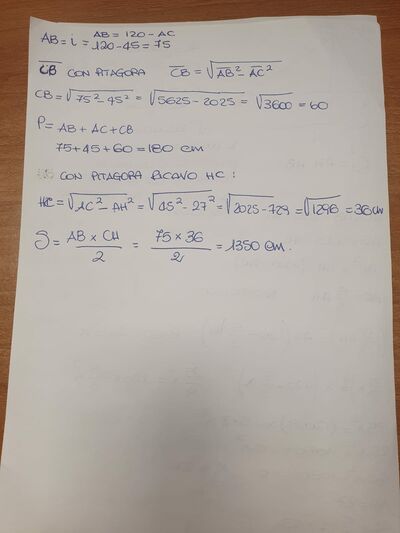 AB = i = AB = 120 - AC
120 - 45 = 75
CB CON PITAGORA CB = √AB² - AC²
CB = √75² - 45² = √5625 - 2025 = √3600 = 60
P = AB + AC + CB
75 + 45 + 60 = 180 cm
CON PITAGORA RICAVO HC :
HC = √AC² - AH² = √45² - 27² = √2025 - 729 = √1296 = 36 cm
S = AB × CH / 2 = 75 × 36 / 2 = 1350 cm.